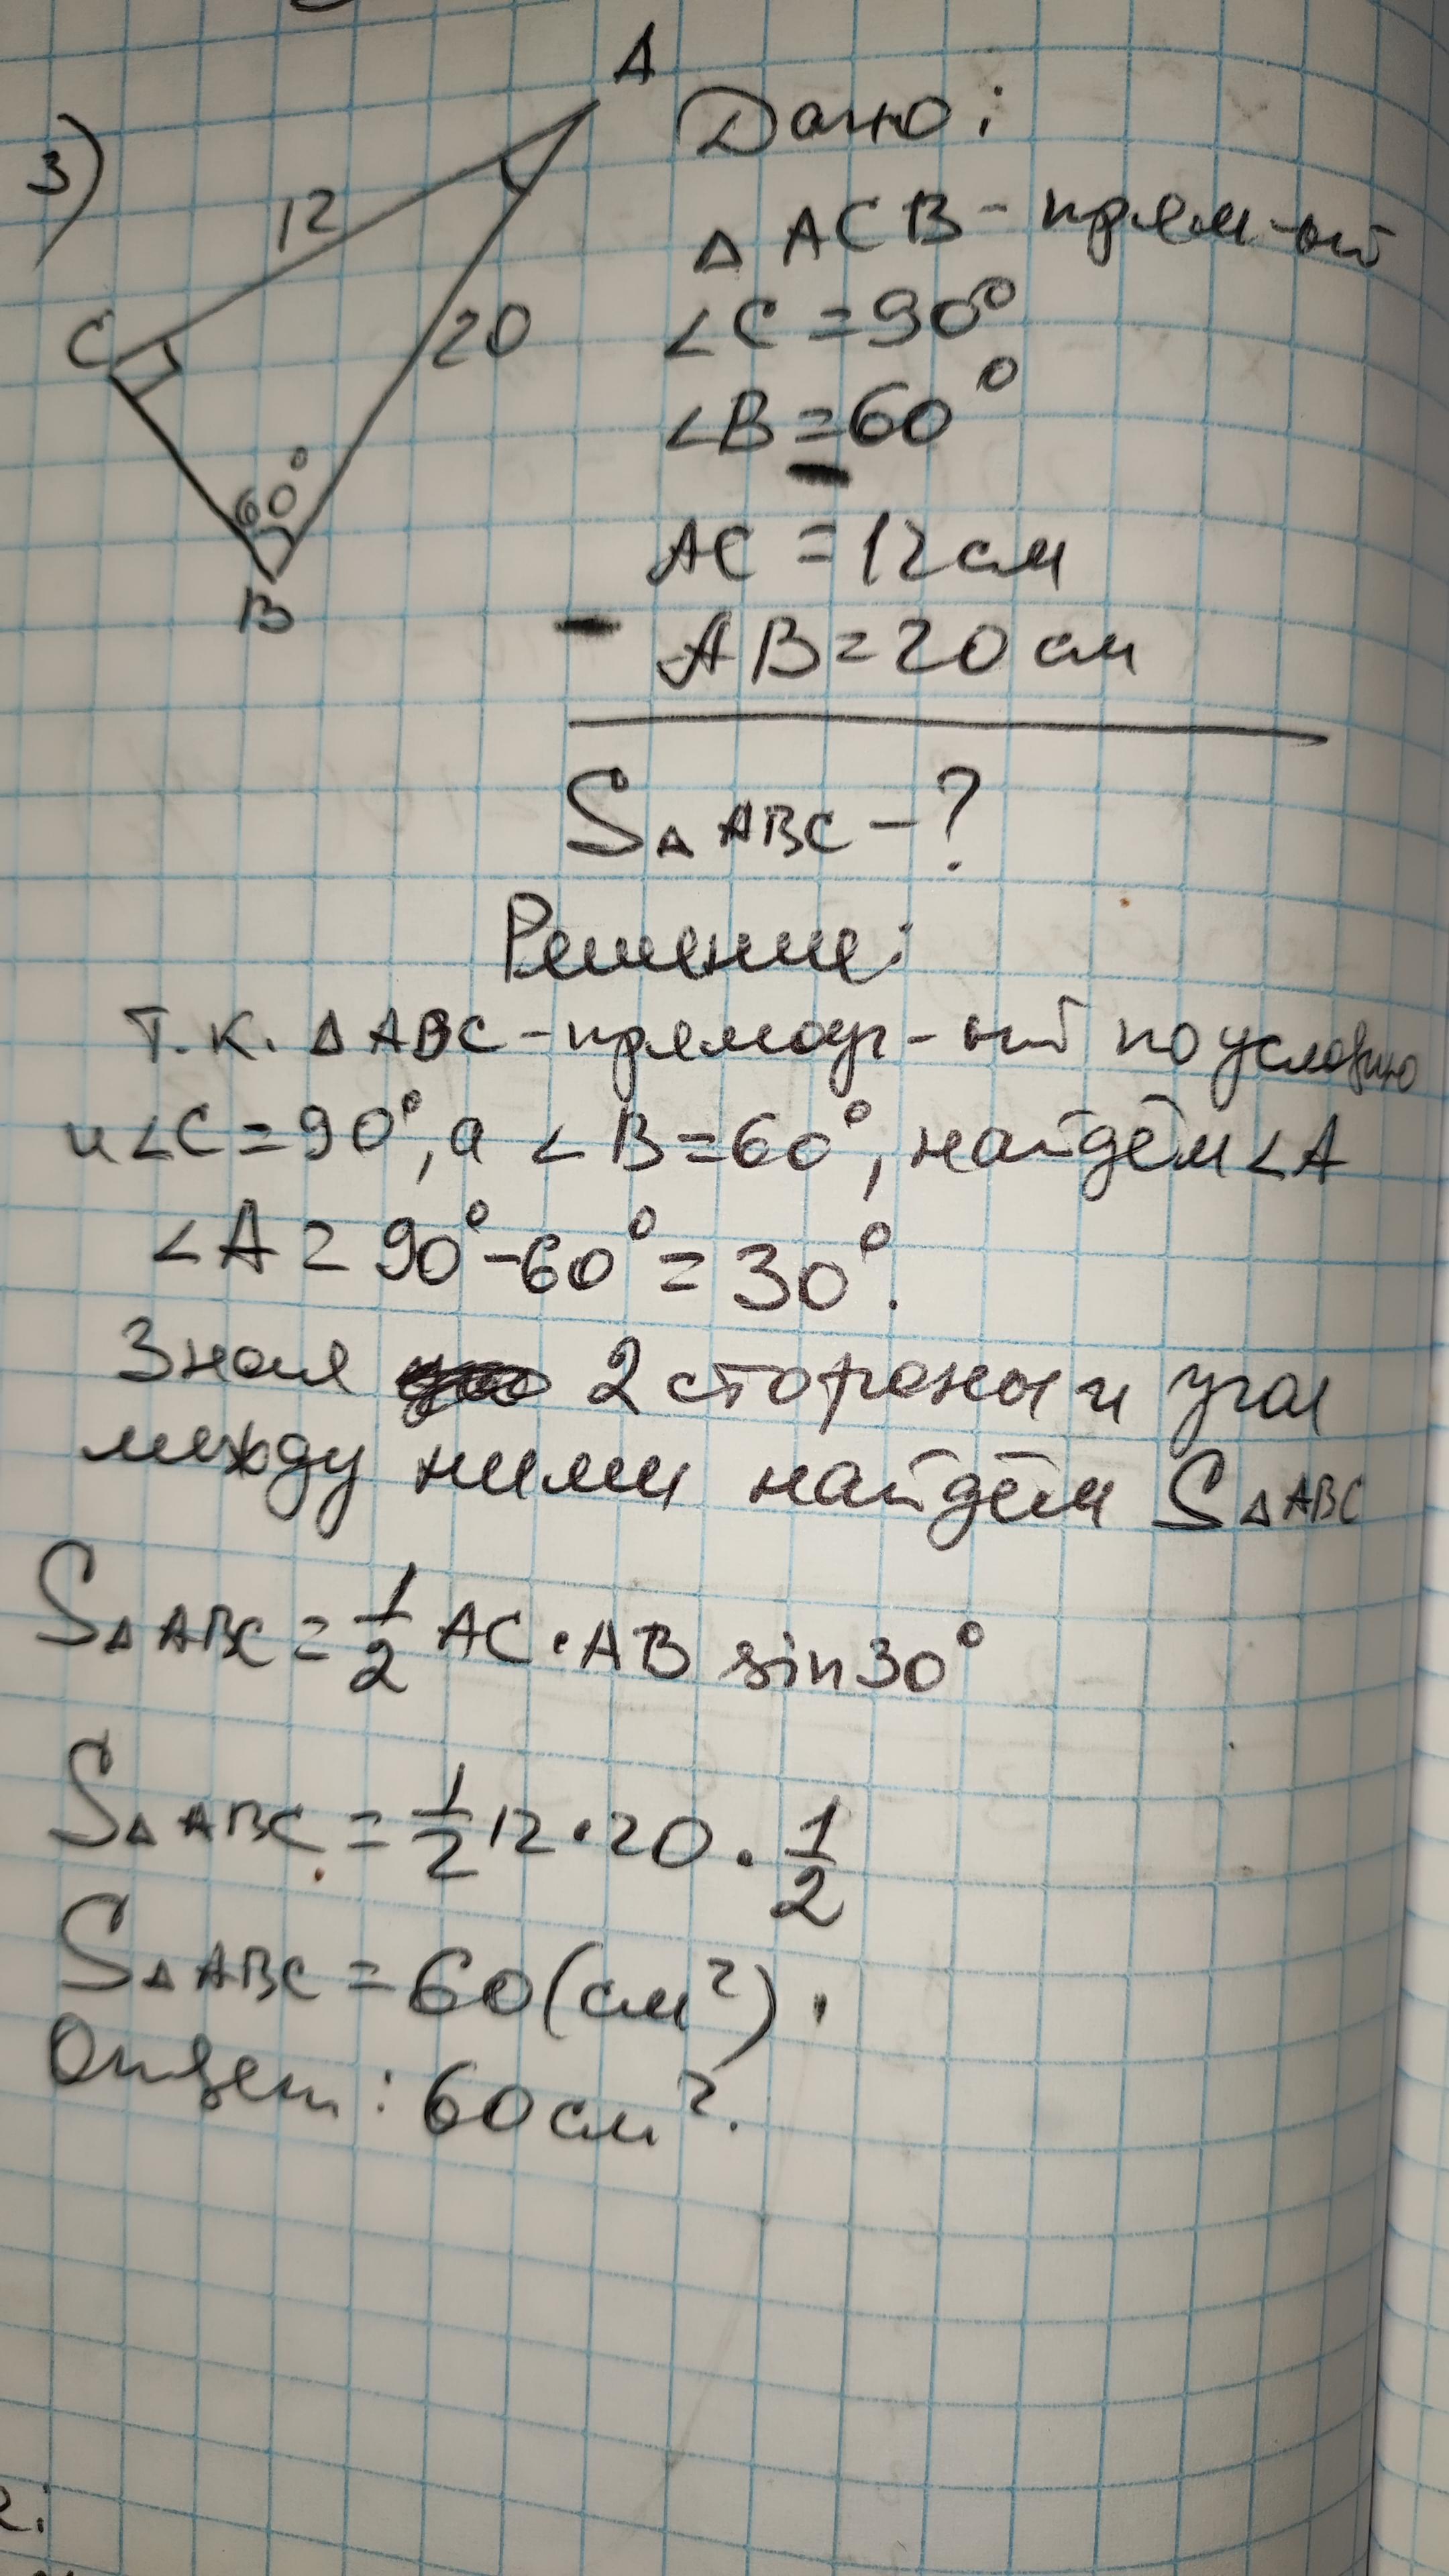 3)
A
12
C
20
60°
B
Дано:
△ ACB - прям-ый
∠C = 90°
∠B = 60°
AC = 12 см
AB = 20 см
S△ABC - ?
Решение:
Т.к. △ABC - прямоуг-ый по условию
и ∠C = 90°, а ∠B = 60°, найдём ∠A
∠A = 90° - 60° = 30°.
Зная 2 стороны и угол
между ними найдём S△ABC
S△ABC = 1/2 AC · AB sin30°
S△ABC = 1/2 12 · 20 · 1/2
S△ABC = 60 (см²).
Ответ: 60 см².